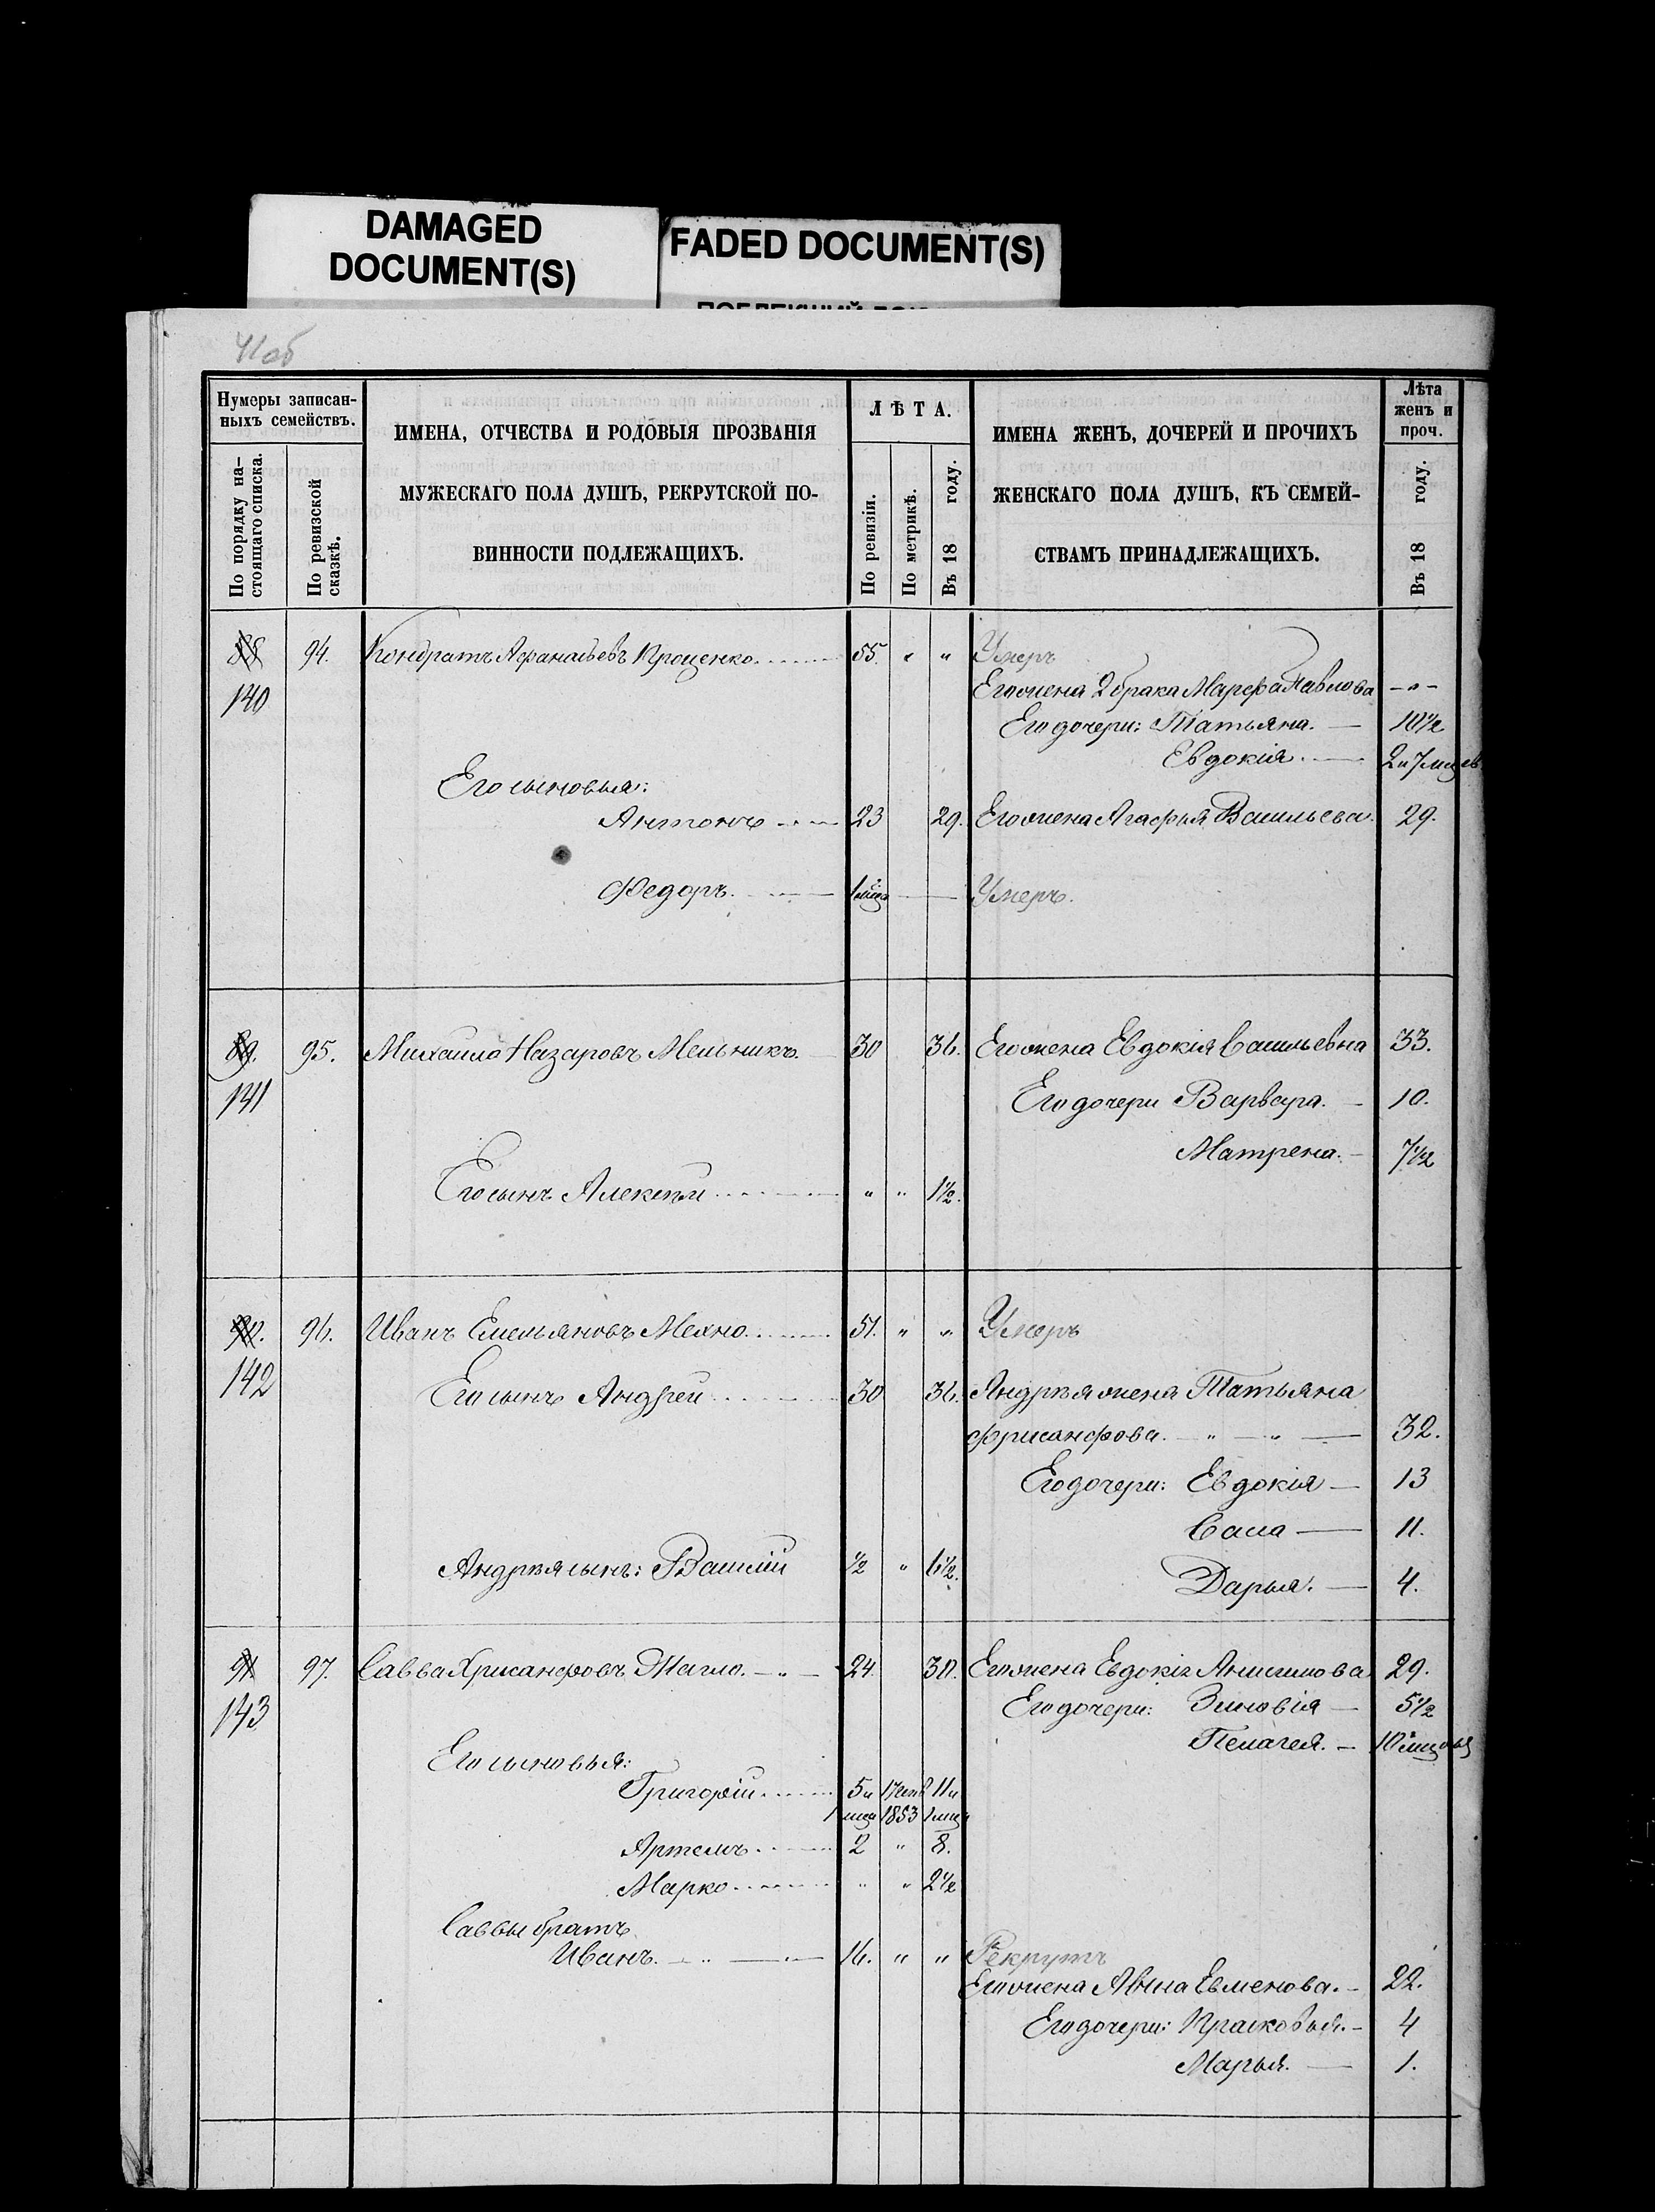 DAMAGED
DOCUMENT(S)
FADED DOCUMENT(S)
41об
Нумеры записан-
ныхъ семействъ.
По порядку на-
стоящаго списка.
По ревизской
сказкѣ.
ИМЕНА, ОТЧЕСТВА И РОДОВЫЯ ПРОЗВАНІЯ
МУЖЕСКАГО ПОЛА ДУШЪ, РЕКРУТСКОЙ ПО-
ВИННОСТИ ПОДЛЕЖАЩИХЪ.
ЛѢТА.
По ревизіи.
По метрикѣ.
Въ 18 году.
ИМЕНА ЖЕНЪ, ДОЧЕРЕЙ И ПРОЧИХЪ
ЖЕНСКАГО ПОЛА ДУШЪ, КЪ СЕМЕЙ-
СТВАМЪ ПРИНАДЛЕЖАЩИХЪ.
Лѣта
женъ и
проч.
Въ 18 году.
88 94. Кондратъ Афанасьевъ Проценко. 55. " " Умеръ
140 Его жена 2 брака Марфа Павлова -"-
Его дочери: Татьяна. — 10½
Евдокія. — 2 и 7 мцев
Его сыновья:
Антонъ 23 29. Его жена Агафья Васильева. 29.
Федоръ. Умеръ.
89. 95. Михайло Назаровъ Мельникъ. 30 36. Его жена Евдокія Васильевна 33.
141 Его дочери Варвара. - 10.
Матрена. - 7½
Его сынъ Алексѣй " " 1½.
90. 96. Иванъ Емельяновъ Мехно. 51. " " Умеръ
142 Его сынъ Андрей 30 36. Андрѣя жена Татьяна
Фрисанфова. " " 32.
Его дочери: Евдокія — 13
Сава — 11.
Андрѣя сынъ: Василій ½ " 6½.
Дарья. — 4.
91. 97. Саввa Хрисанфовъ Жагло. 24. 30. Его жена Евдокія Анисимова 29.
143 Его дочери: Зиновія — 5½
Пелагея. — 10 мцовъ
Его сыновья:
Григорій 5 и 17 11 и
1 мца 1853 1 мца
Артемъ 2 " 8.
Марко " " 2½
Саввы братъ
Иванъ. 16. " " Рекрутъ
Его жена Анна Евменова. - 22.
Его дочери: Прасковья. - 4
Марья. — 1.